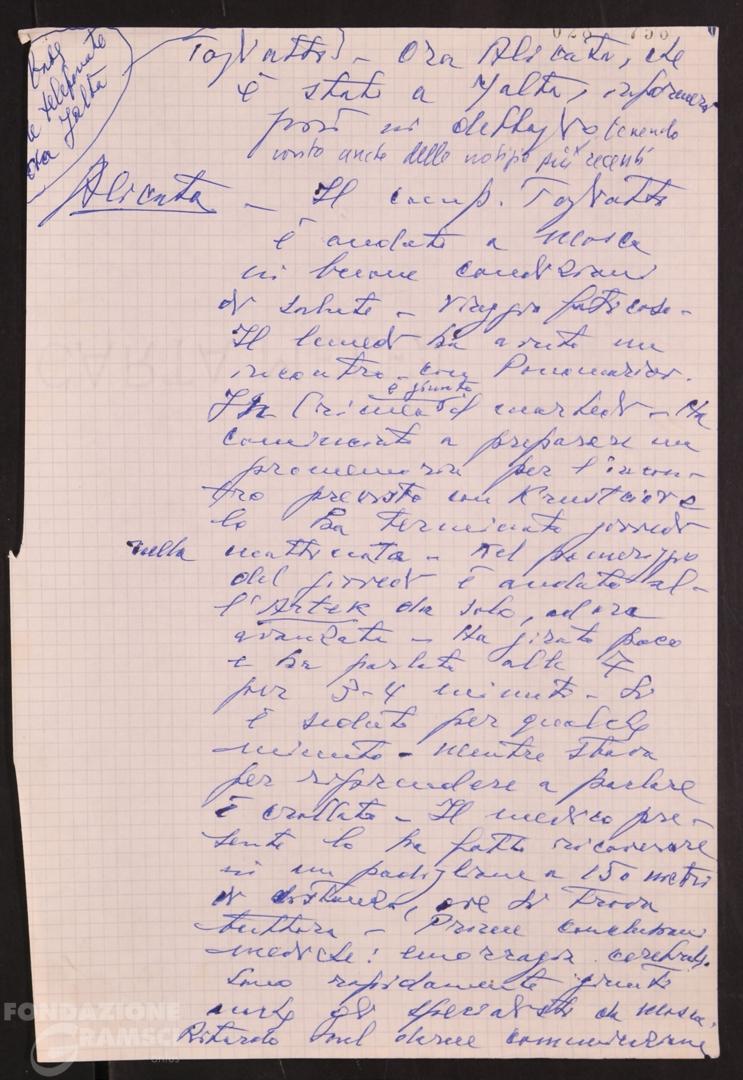 028 756
telefonate
Yalta
Togliatti - Ora Alicata, che
è stato a Yalta, informerà
poi in dettaglio tenendo
conto anche delle notizie più recenti
Alicata - Il comp. Togliatti
è andato a Mosca
in buone condizioni
di salute - viaggio faticoso -
Il lunedì ha avuto un
incontro con Ponomariov.
In Crimea è giunto il martedì - Ha
cominciato a preparare un
promemoria per l'incon-
tro previsto con Krusciov e
lo ha terminato giovedì
nella mattinata - Nel pomeriggio
del giovedì è andato al-
l'Artek da solo, ad ora
avanzata - Ha girato poco
e ha parlato alle 7
per 3-4 minuti - Si
è seduto per qualche
minuto - mentre stava
per riprendere a parlare
è crollato - Il medico pre-
sente lo ha fatto ricoverare
in un padiglione a 150 metri
di distanza, ove si trova
tuttora - Prime conclusioni
mediche: emorragia cerebrale.
Sono rapidamente giunti
anche gli specialisti da Mosca.
Ritardo nel darne comunicazione
FONDAZIONE
GRAMSCI
onlus